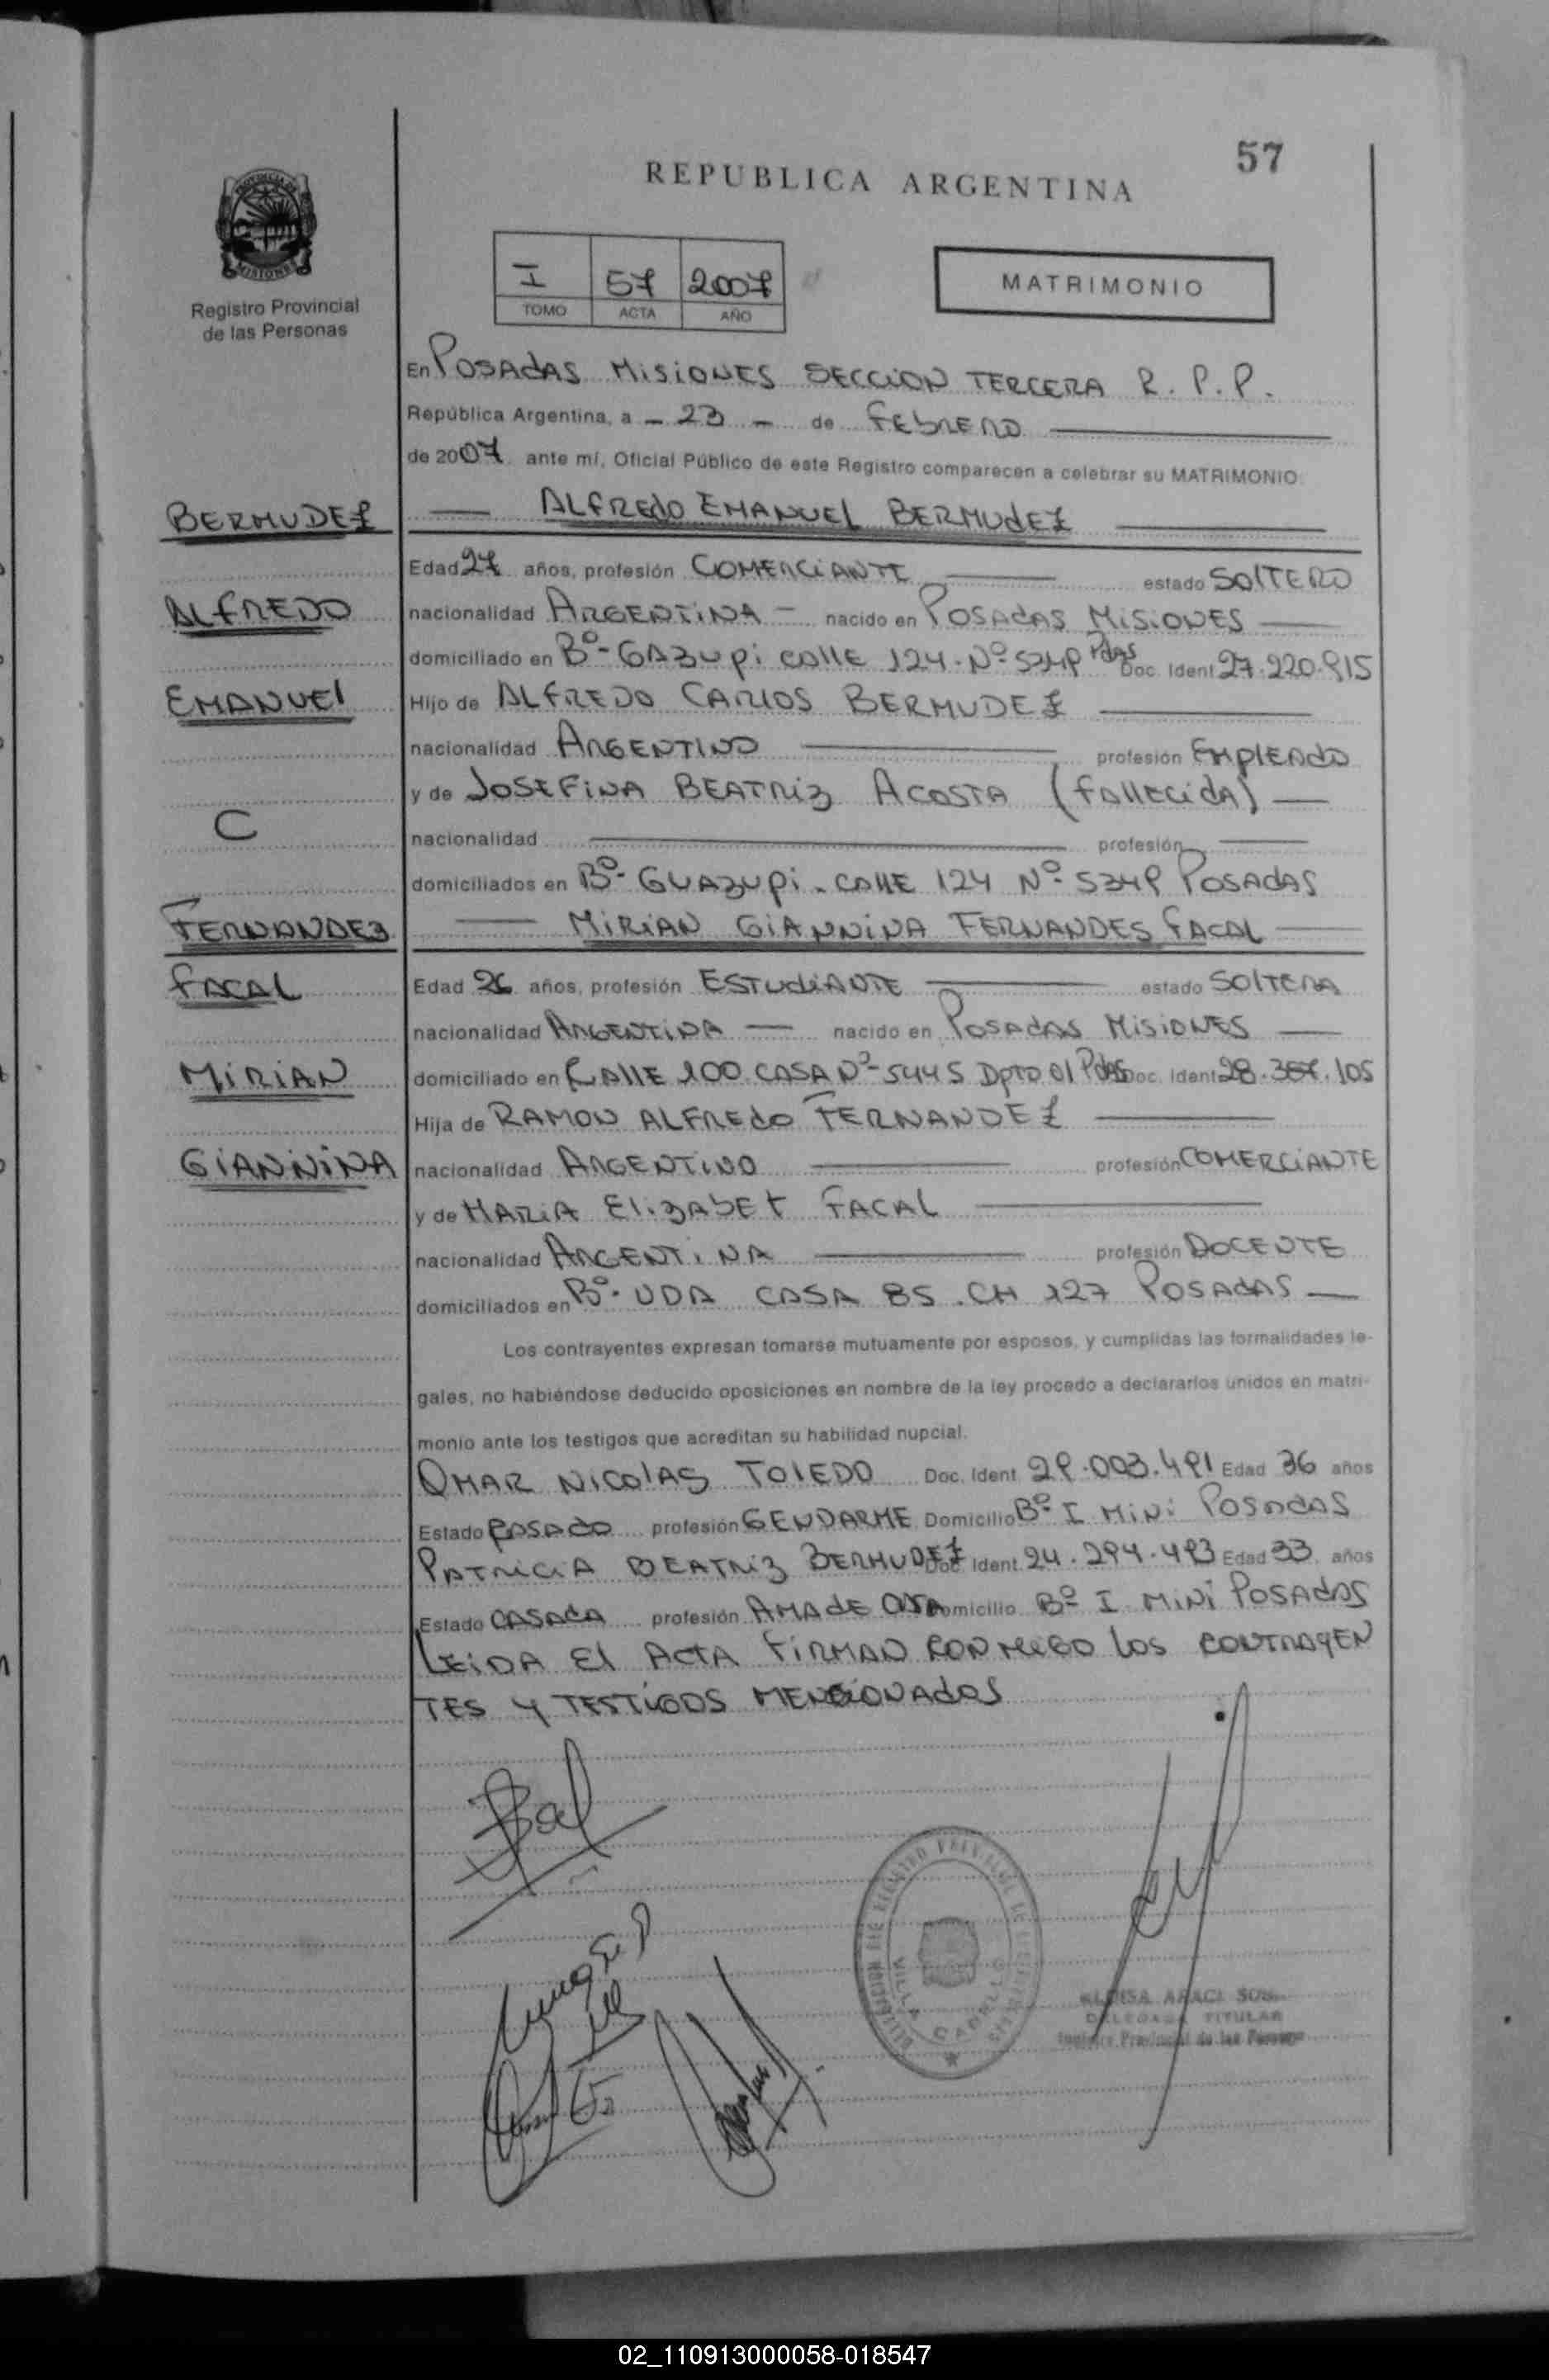 57
REPUBLICA ARGENTINA
PROVINCIA DE
MISIONES
Registro Provincial
de las Personas
I 57 2007
TOMO ACTA AÑO
MATRIMONIO
En POSAdAS MisiONES SECCiON TERCERA R. P. P.
República Argentina, a - 23 - de FEbRERO
de 2007 ante mí, Oficial Público de este Registro comparecen a celebrar su MATRIMONIO:
BERMUDEZ
ALFREdO EMANUEL BERMUdEZ
Edad 27 años, profesión COMERCiANTE estado SOLTERO
ALFREDO
nacionalidad ARGENTINA - nacido en POSAdAS MiSiONES
domiciliado en Bº- GAZUPi CALLE 124 - Nº 5349 PdAS Doc. Ident. 27.220.915
EMANUEL
Hijo de ALFREDO CARLOS BERMUDEZ
nacionalidad ARGENTINO profesión EMPLEAdO
y de JOSEFiNA BEATRiZ ACOSTA (FALLECidA)
C
nacionalidad profesión
domiciliados en Bº- GUAZUPi - CALLE 124 Nº 5349 POSAdAS
FERNANDEZ
MiRiAN GiANNiNA FERNANDES FACAL
FACAL
Edad 26 años, profesión ESTUdiANTE estado SOLTERA
nacionalidad ARGENTINA nacido en POSAdAS MiSiONES
MiRiAN
domiciliado en CALLE 100 CASA Nº 5445 DPTO 01 PdAS Doc. Ident. 28.367.105
Hija de RAMON ALFREdO FERNANDEZ
GiANNiNA
nacionalidad ARGENTINO profesión COMERCiANTE
y de MARiA ELiZAbEt FACAL
nacionalidad ARGENTiNA profesión DOCENTE
domiciliados en Bº- UDA CASA 85 . CH 127 POSAdAS
Los contrayentes expresan tomarse mutuamente por esposos, y cumplidas las formalidades le-
gales, no habiéndose deducido oposiciones en nombre de la ley procedo a declararlos unidos en matri-
monio ante los testigos que acreditan su habilidad nupcial.
OMAR NiCOLAS TOLEDO Doc. Ident. 29.003.491 Edad 36 años
Estado CASAdO profesión GENDARME Domicilio Bº I MiNi POSAdAS
PATRiCiA BEATRiZ BERMUDEZ Doc. Ident. 24.294.493 Edad 33 años
Estado CASAdA profesión AMA dE CASA Domicilio Bº I MiNi POSAdAS
LEiDA El ACTA FiRMAN CONMiGO LOS CONTRAyEN
TES y TESTiGOS MENCiONAdOS
VILLA CABELLO
DELEGADA TITULAR
Registro Provincial de las Personas
02_110913000058-018547